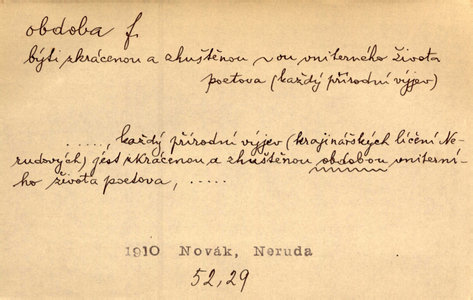 obdoba f.
býti zkrácenou a zhuštěnou ~ou vniterného života
poetova (každý přírodní výjev)
....., každý přírodní výjev (krajinářských líčení Ne-
rudových) jest zkrácenou a zhuštěnou obdobou vniterní-
ho života poetova, .....
1910 Novák, Neruda
52,29